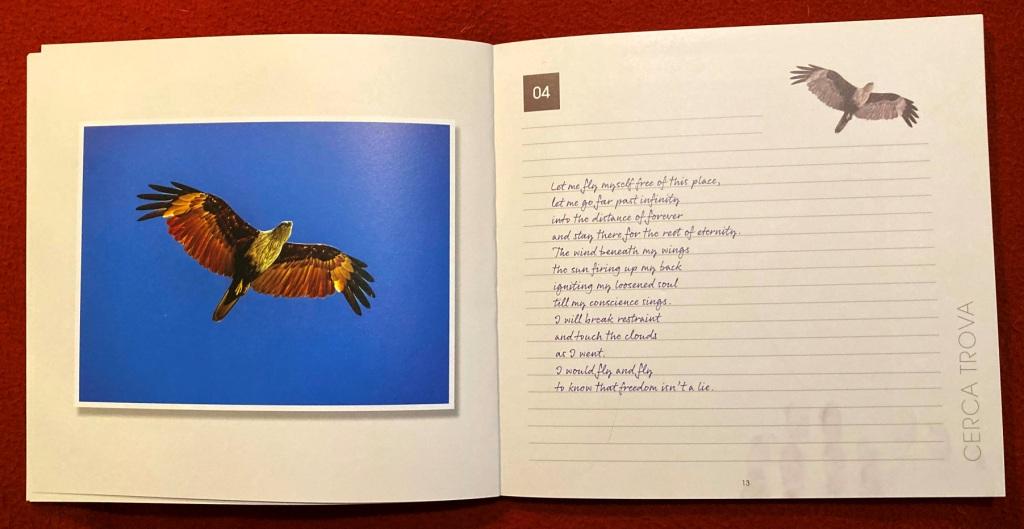 04
Let me fly myself free of this place,
let me go far past infinity
into the distance of forever
and stay there for the rest of eternity.
The wind beneath my wings
the sun firing up my back
igniting my loosened soul
till my conscience sings.
I will break restraint
and touch the clouds
as I went.
I would fly and fly
to know that freedom isn't a lie.
CERCA TROVA
13